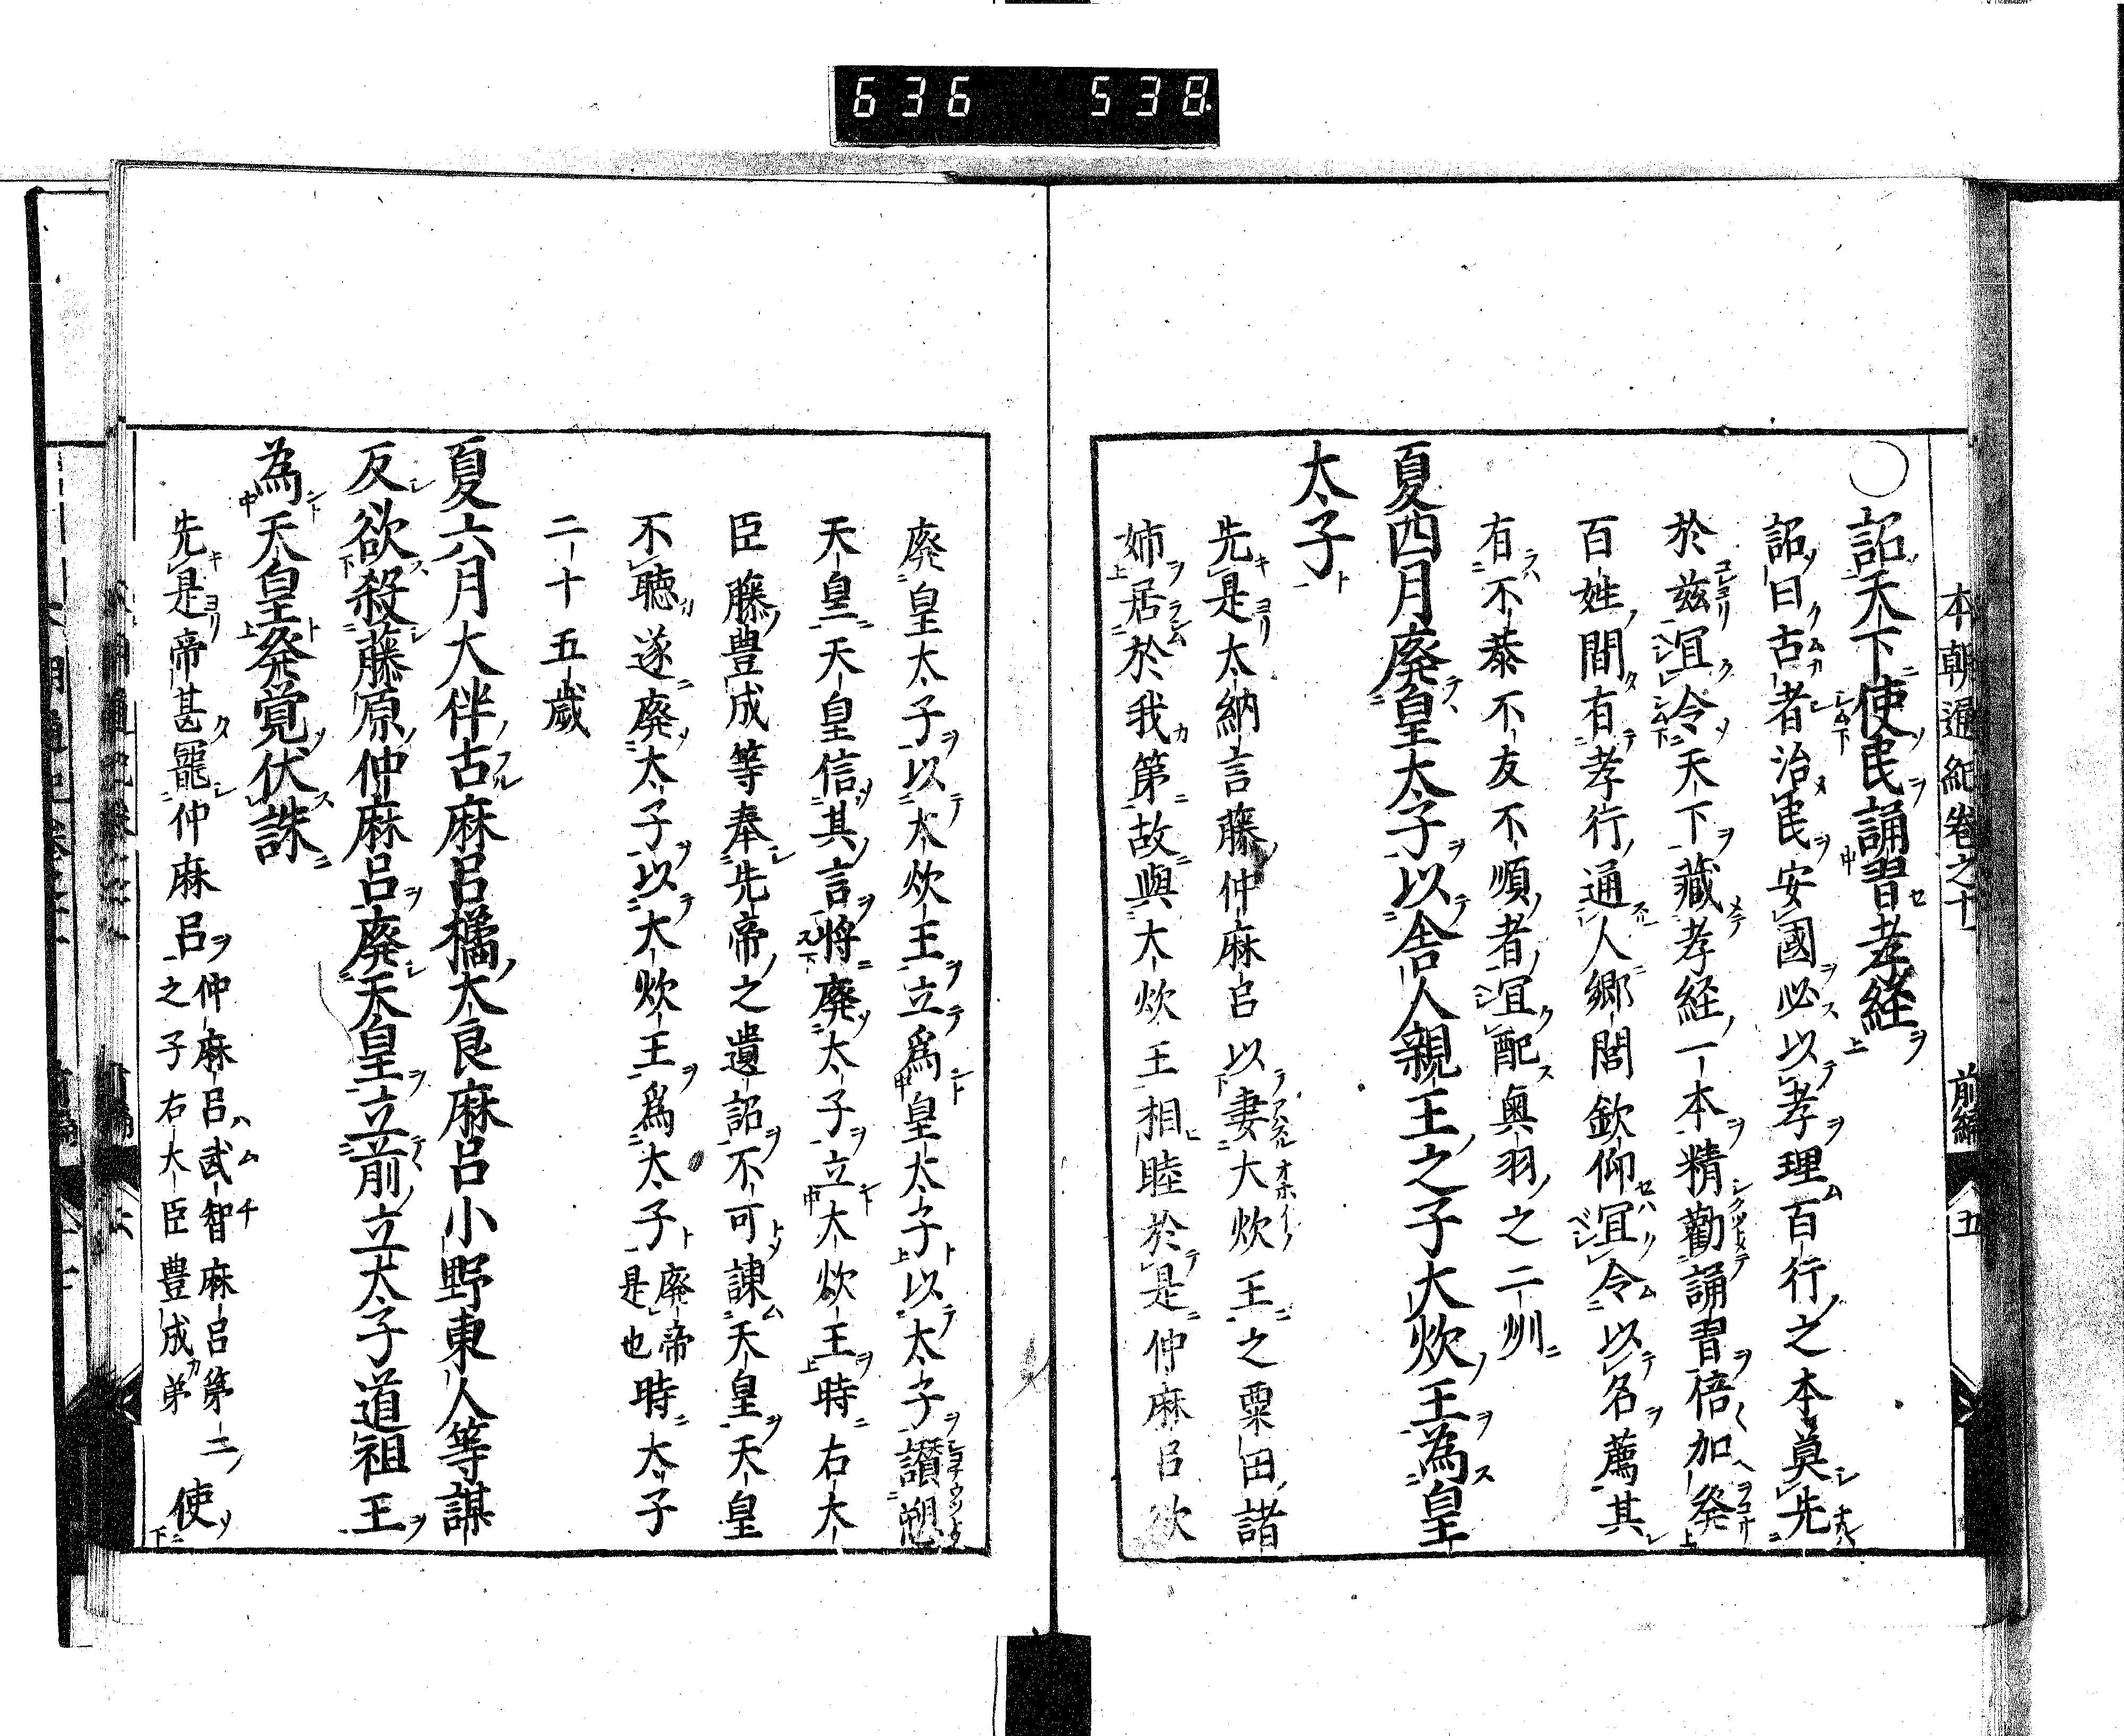 636 538
本朝通紀卷之十 前編 五
○詔天下使民誦習孝経
詔曰古者治民安國必以孝理百行之本莫先
於兹冝令天下藏孝経一本精勸誦習倍加發
百姓間有孝行通人郷閭欽仰冝令以名薦其
有不恭不友不順者冝配奥羽之二州
夏四月廃皇太子以舎人親王之子大炊王為皇
太子
先是太納言藤仲麻呂以妻大炊王之粟田諸
姉居於我第故與大炊王相睦於是仲麻呂欲
廃皇太子以大炊王立爲皇太子以太子讃愬
天皇天皇信其言将廃太子立大炊王時右大
臣藤豊成等奉先帝之遺詔不可諌天皇天皇
不聴遂廃太子以大炊王爲太子廃帝是也時太子
二十五歳
夏六月大伴古麻呂橘太良麻呂小野東人等謀
反欲殺藤原仲麻呂廃天皇立前立太子道祖王
為天皇発覚伏誅
先是帝甚寵仲麻呂仲麻呂武智麻呂第二之子右大臣豊成弟使